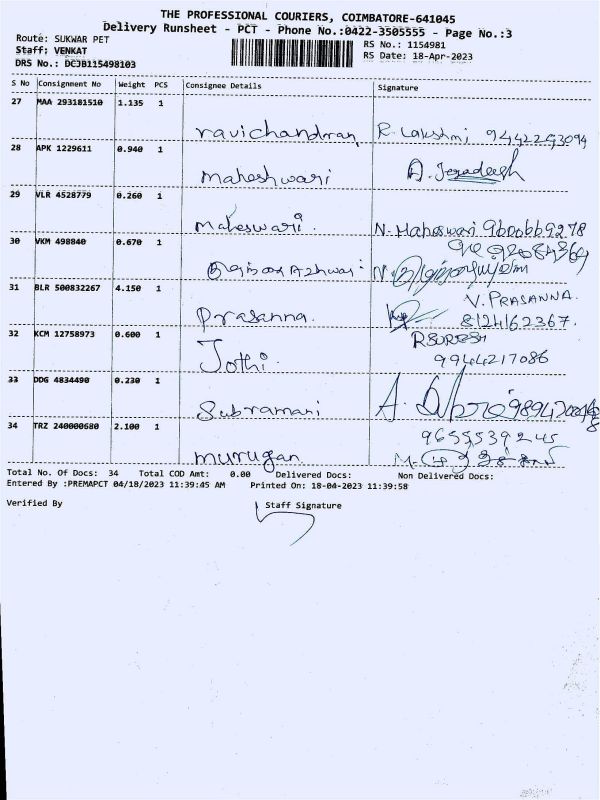 THE PROFESSIONAL COURIERS, COIMBATORE-641045
Delivery Runsheet - PCT - Phone No.:0422-3505555 - Page No.:3
Route: SUKWAR PET
RS No.: 1154981
Staff: VENKAT
RS Date: 18-Apr-2023
DRS No.: DCJB115498103
S No Consignment No Weight PCS Consignee Details Signature
27 MAA 293181510 1.135 1
ravichandran R. Lakshmi 9442293094
28 APK 1229611 0.940 1
maheshwari
29 VLR 4528779 0.260 1
maheswari. N. Maheswari 9600669278
30 VKM 498840 0.670 1
31 BLR 500832267 4.150 1
V. PRASANNA.
prasanna. 8124162367.
32 KCM 12758973 0.600 1
R SURESH
Jothi. 9944217086
33 DDG 4834490 0.230 1
Subramani
34 TRZ 240000680 2.100 1
9655539245
murugan
Total No. Of Docs: 34 Total COD Amt: 0.00 Delivered Docs: Non Delivered Docs:
Entered By :PREMAPCT 04/18/2023 11:39:45 AM Printed On: 18-04-2023 11:39:58
Verified By Staff Signature